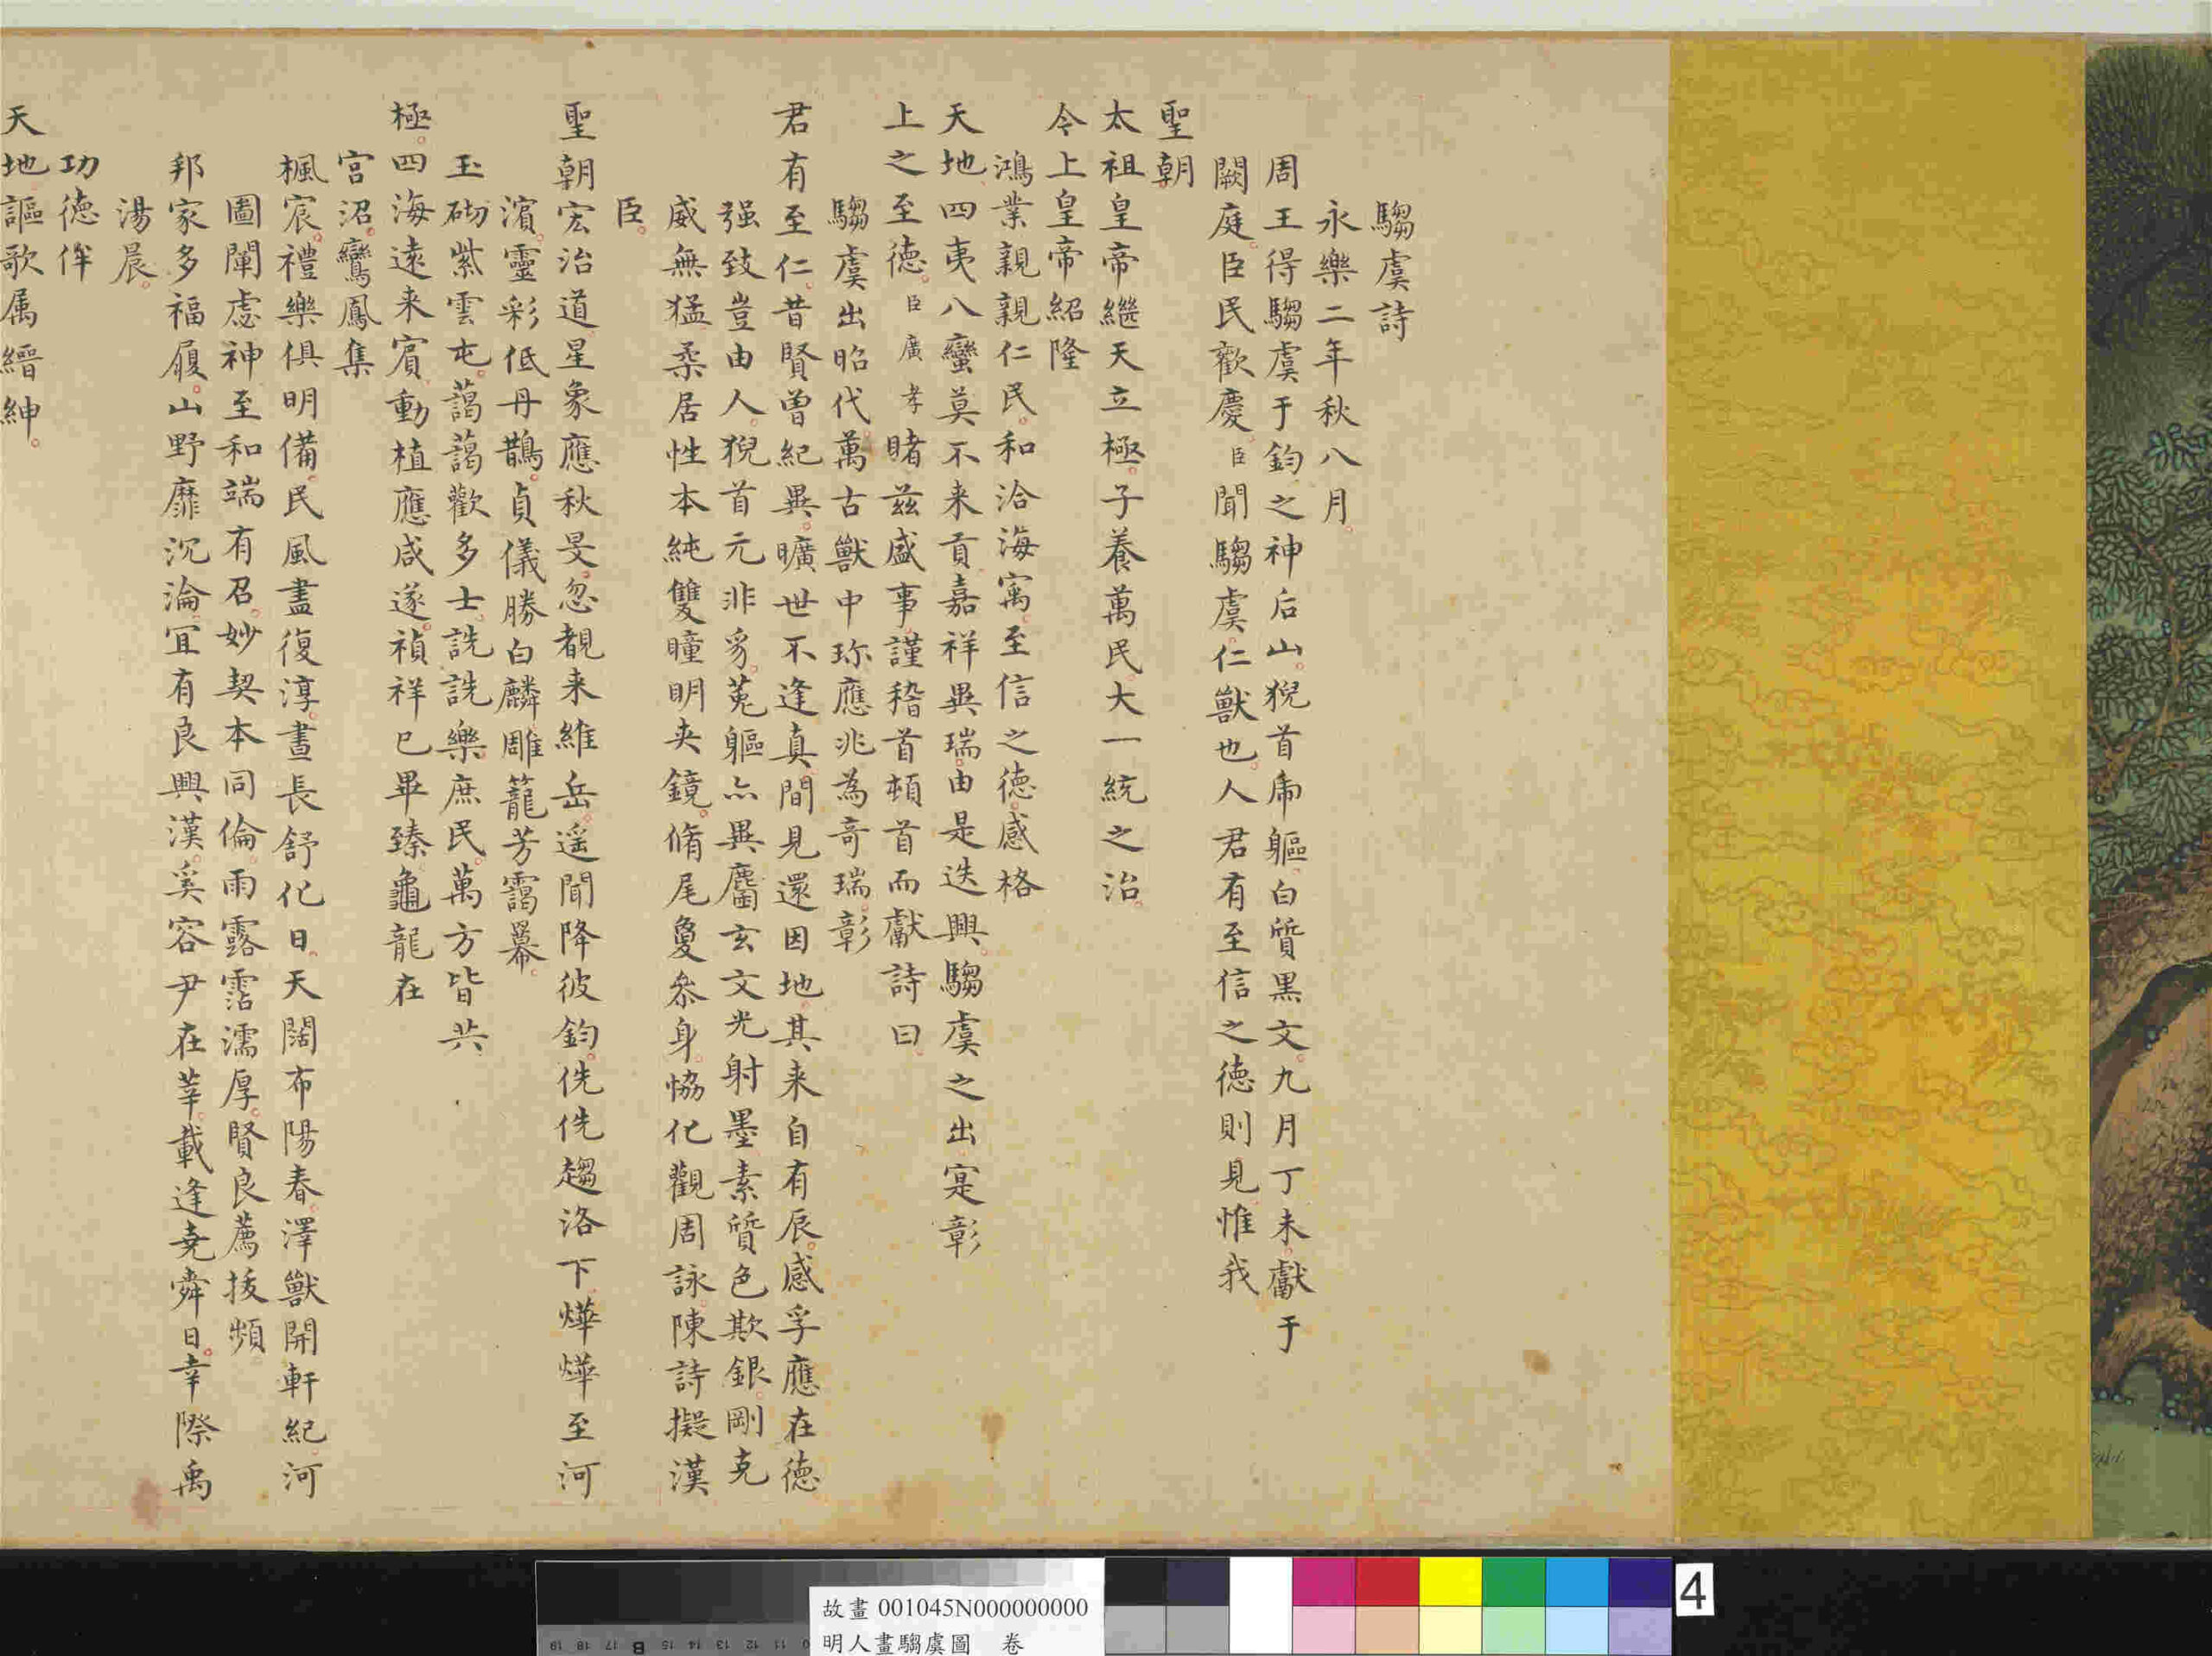 騶虞詩
永樂二年秋八月
周王得騶虞于鈞之神后山猊首虎軀白質黑文九月丁未獻于
闕庭臣民歡慶臣聞騶虞仁獸也人君有至信之德則見惟我
聖朝
太祖皇帝繼天立極子養萬民大一統之治
今上皇帝紹隆
鴻業親親仁民和洽海寓至信之德感格
天地四夷八蠻莫不来貢嘉祥異瑞由是迭興騶虞之出寔彰
上之至德臣廣孝睹茲盛事謹稽首頓首而獻詩曰
騶虞出昭代萬古獸中珎應兆為奇瑞彰
君有至仁昔賢曽紀異曠世不逢真間見還因地其来自有辰感孚應在德
强致豈由人猊首元非豸菟軀亦異麕玄文光射墨素質色欺銀剛克
威無猛柔居性本純雙瞳明夾鏡脩尾夐叅身恊化觀周詠陳詩擬漢
臣
聖朝宏治道星象應秋旻忽覩来維岳遥聞降彼鈞侁侁趨洛下燁燁至河
濱靈彩低丹鵲貞儀勝白麟雕籠芳靄羃
玉砌紫雲屯藹藹歡多士詵詵樂庶民萬方皆共
極四海遠来賓動植應咸遂禎祥已畢臻龜龍在
宫沼鸞鳳集
楓宸禮樂俱明備民風盡復淳晝長舒化日天闊布陽春澤獸開軒紀河
圖闡虙神至和端有召妙契本同倫雨露霑濡厚賢良薦拔頻
邦家多福履山野靡沉淪冝有良興漢奚容尹在莘載逢堯舜日幸際禹
湯晨
功德侔
天地謳歌属縉紳
故畫 001045N000000000
明人畫騶虞圖 卷
4
19 18 17 B 15 14 13 12 11 0